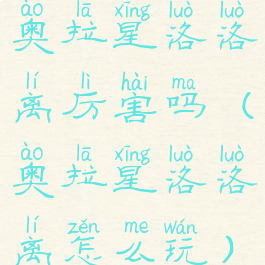 ào lā xīng luò luò
奥拉星洛洛
lí lì hài ma
离厉害吗（
ào lā xīng luò luò
奥拉星洛洛
lí zěn me wán
离怎么玩）